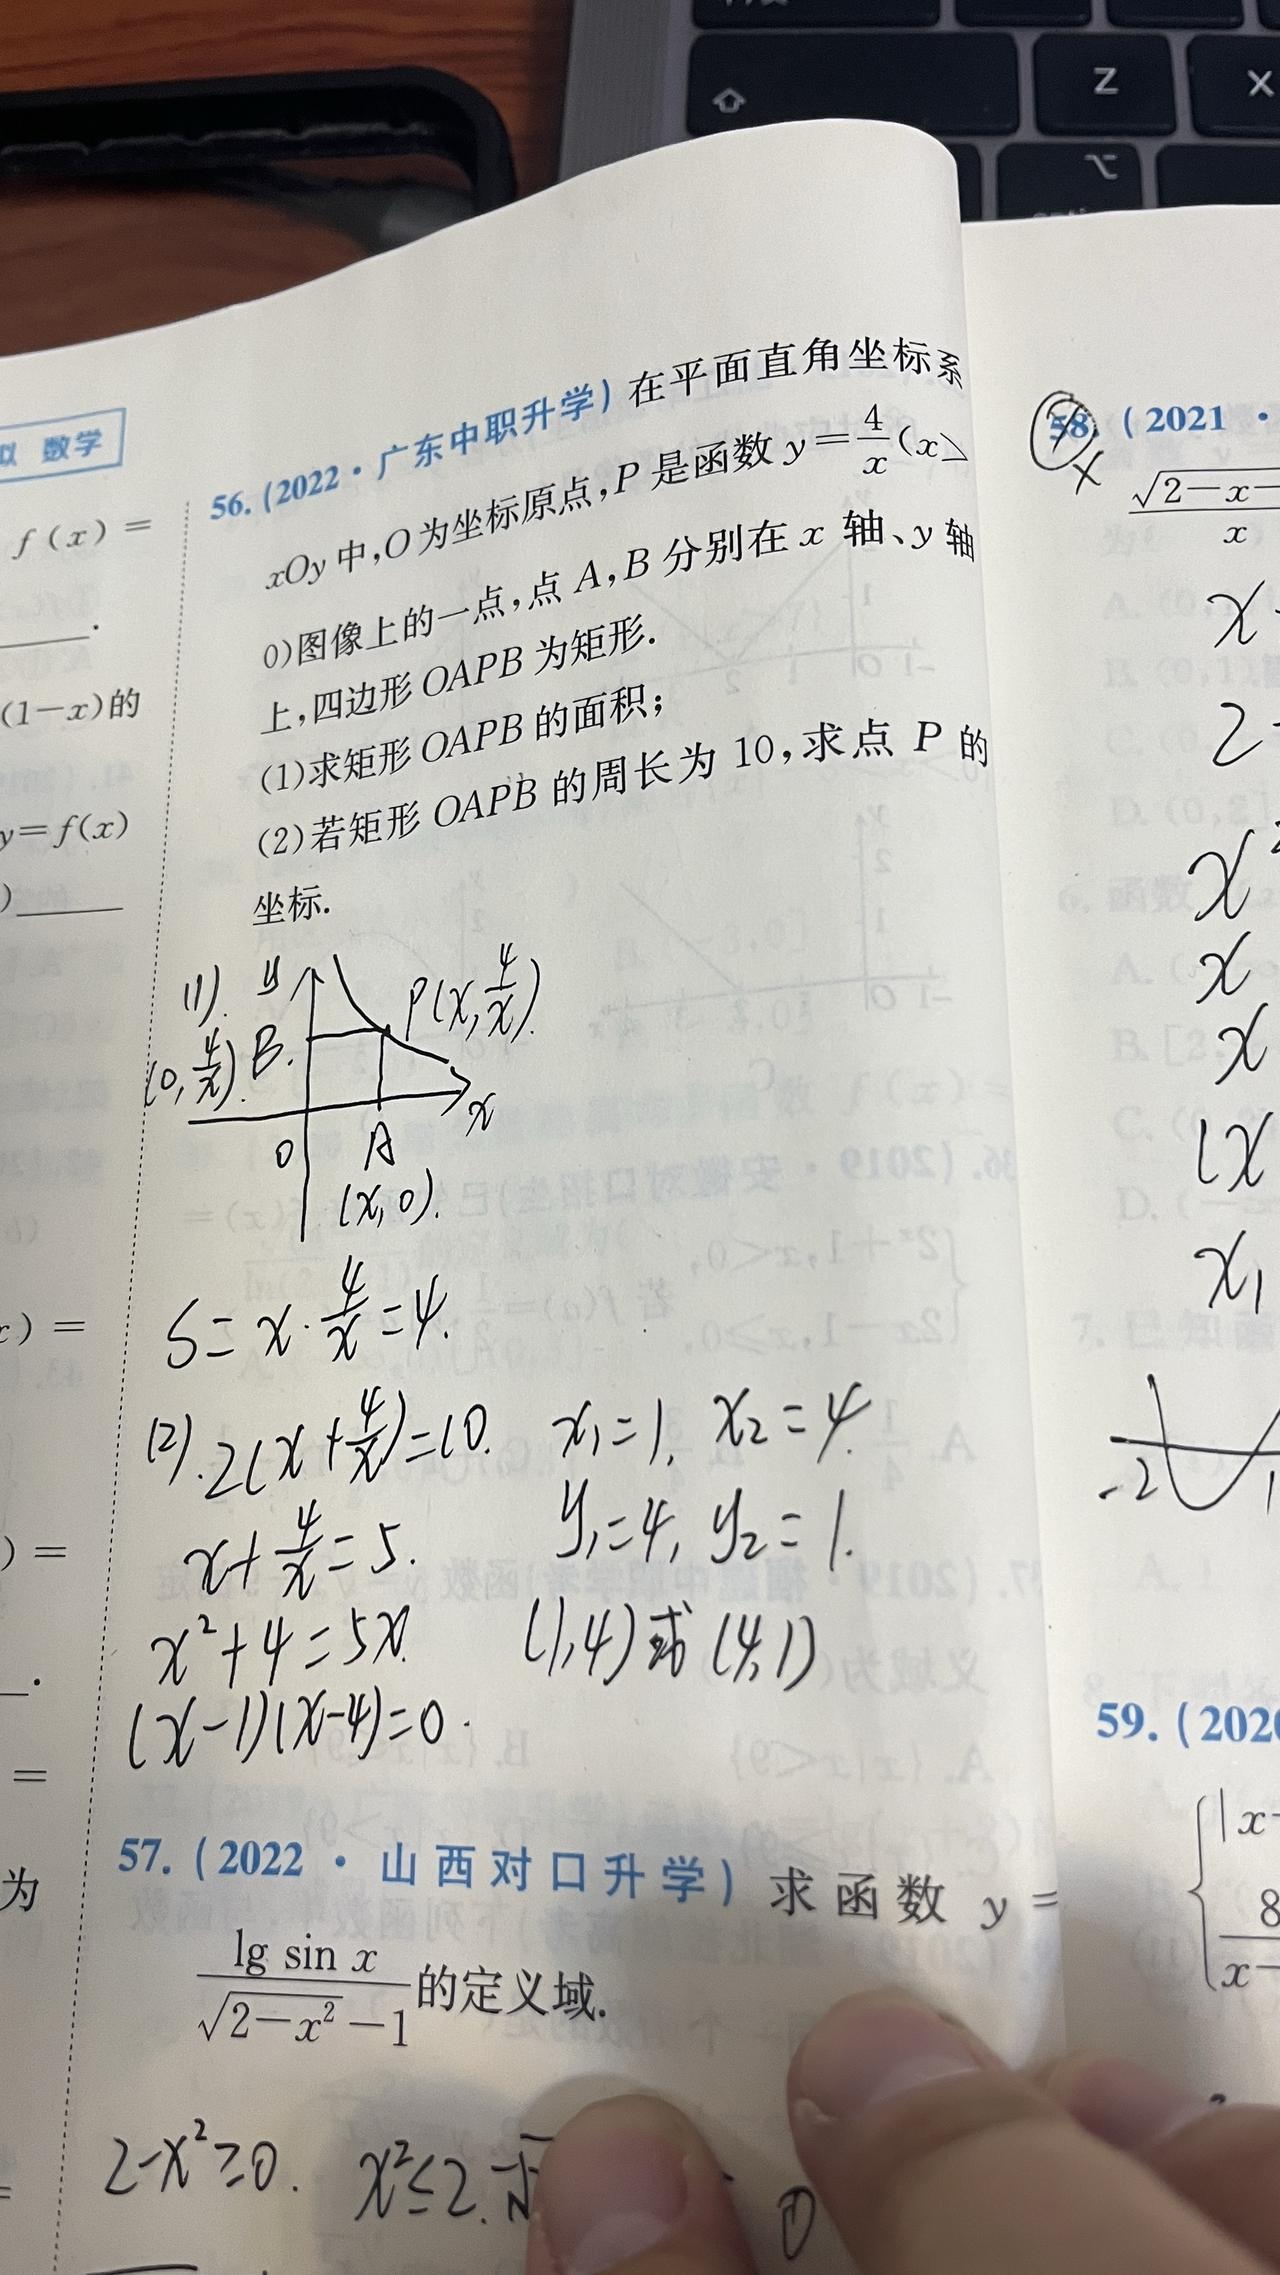 Z
X
⌥
拟 数学
f(x)=
(1-x)的
y=f(x)
56.(2022·广东中职升学)在平面直角坐标系
xOy中,O为坐标原点,P是函数y=4/x(x>
0)图像上的一点,点A,B分别在x轴、y轴
上,四边形OAPB为矩形.
(1)求矩形OAPB的面积;
(2)若矩形OAPB的周长为10,求点P的
坐标.
(1). y P(x,4/x).
(0,4/x). B.
x
O A
(x,0).
S=x·4/x=4.
(2).2(x+4/x)=10. x₁=1, x₂=4.
x+4/x=5. y₁=4, y₂=1.
x²+4=5x. (1,4)或(4,1)
(x-1)(x-4)=0.
57.(2022·山西对口升学)求函数 y=
lg sin x/(√(2-x²)-1)的定义域.
2-x²≥0. x²≤2.
①
为
58.(2021·
√2-x-
x
x
2
x²
x
x
(x
x₁
-2 1
59.(2020
|x-
8
x-